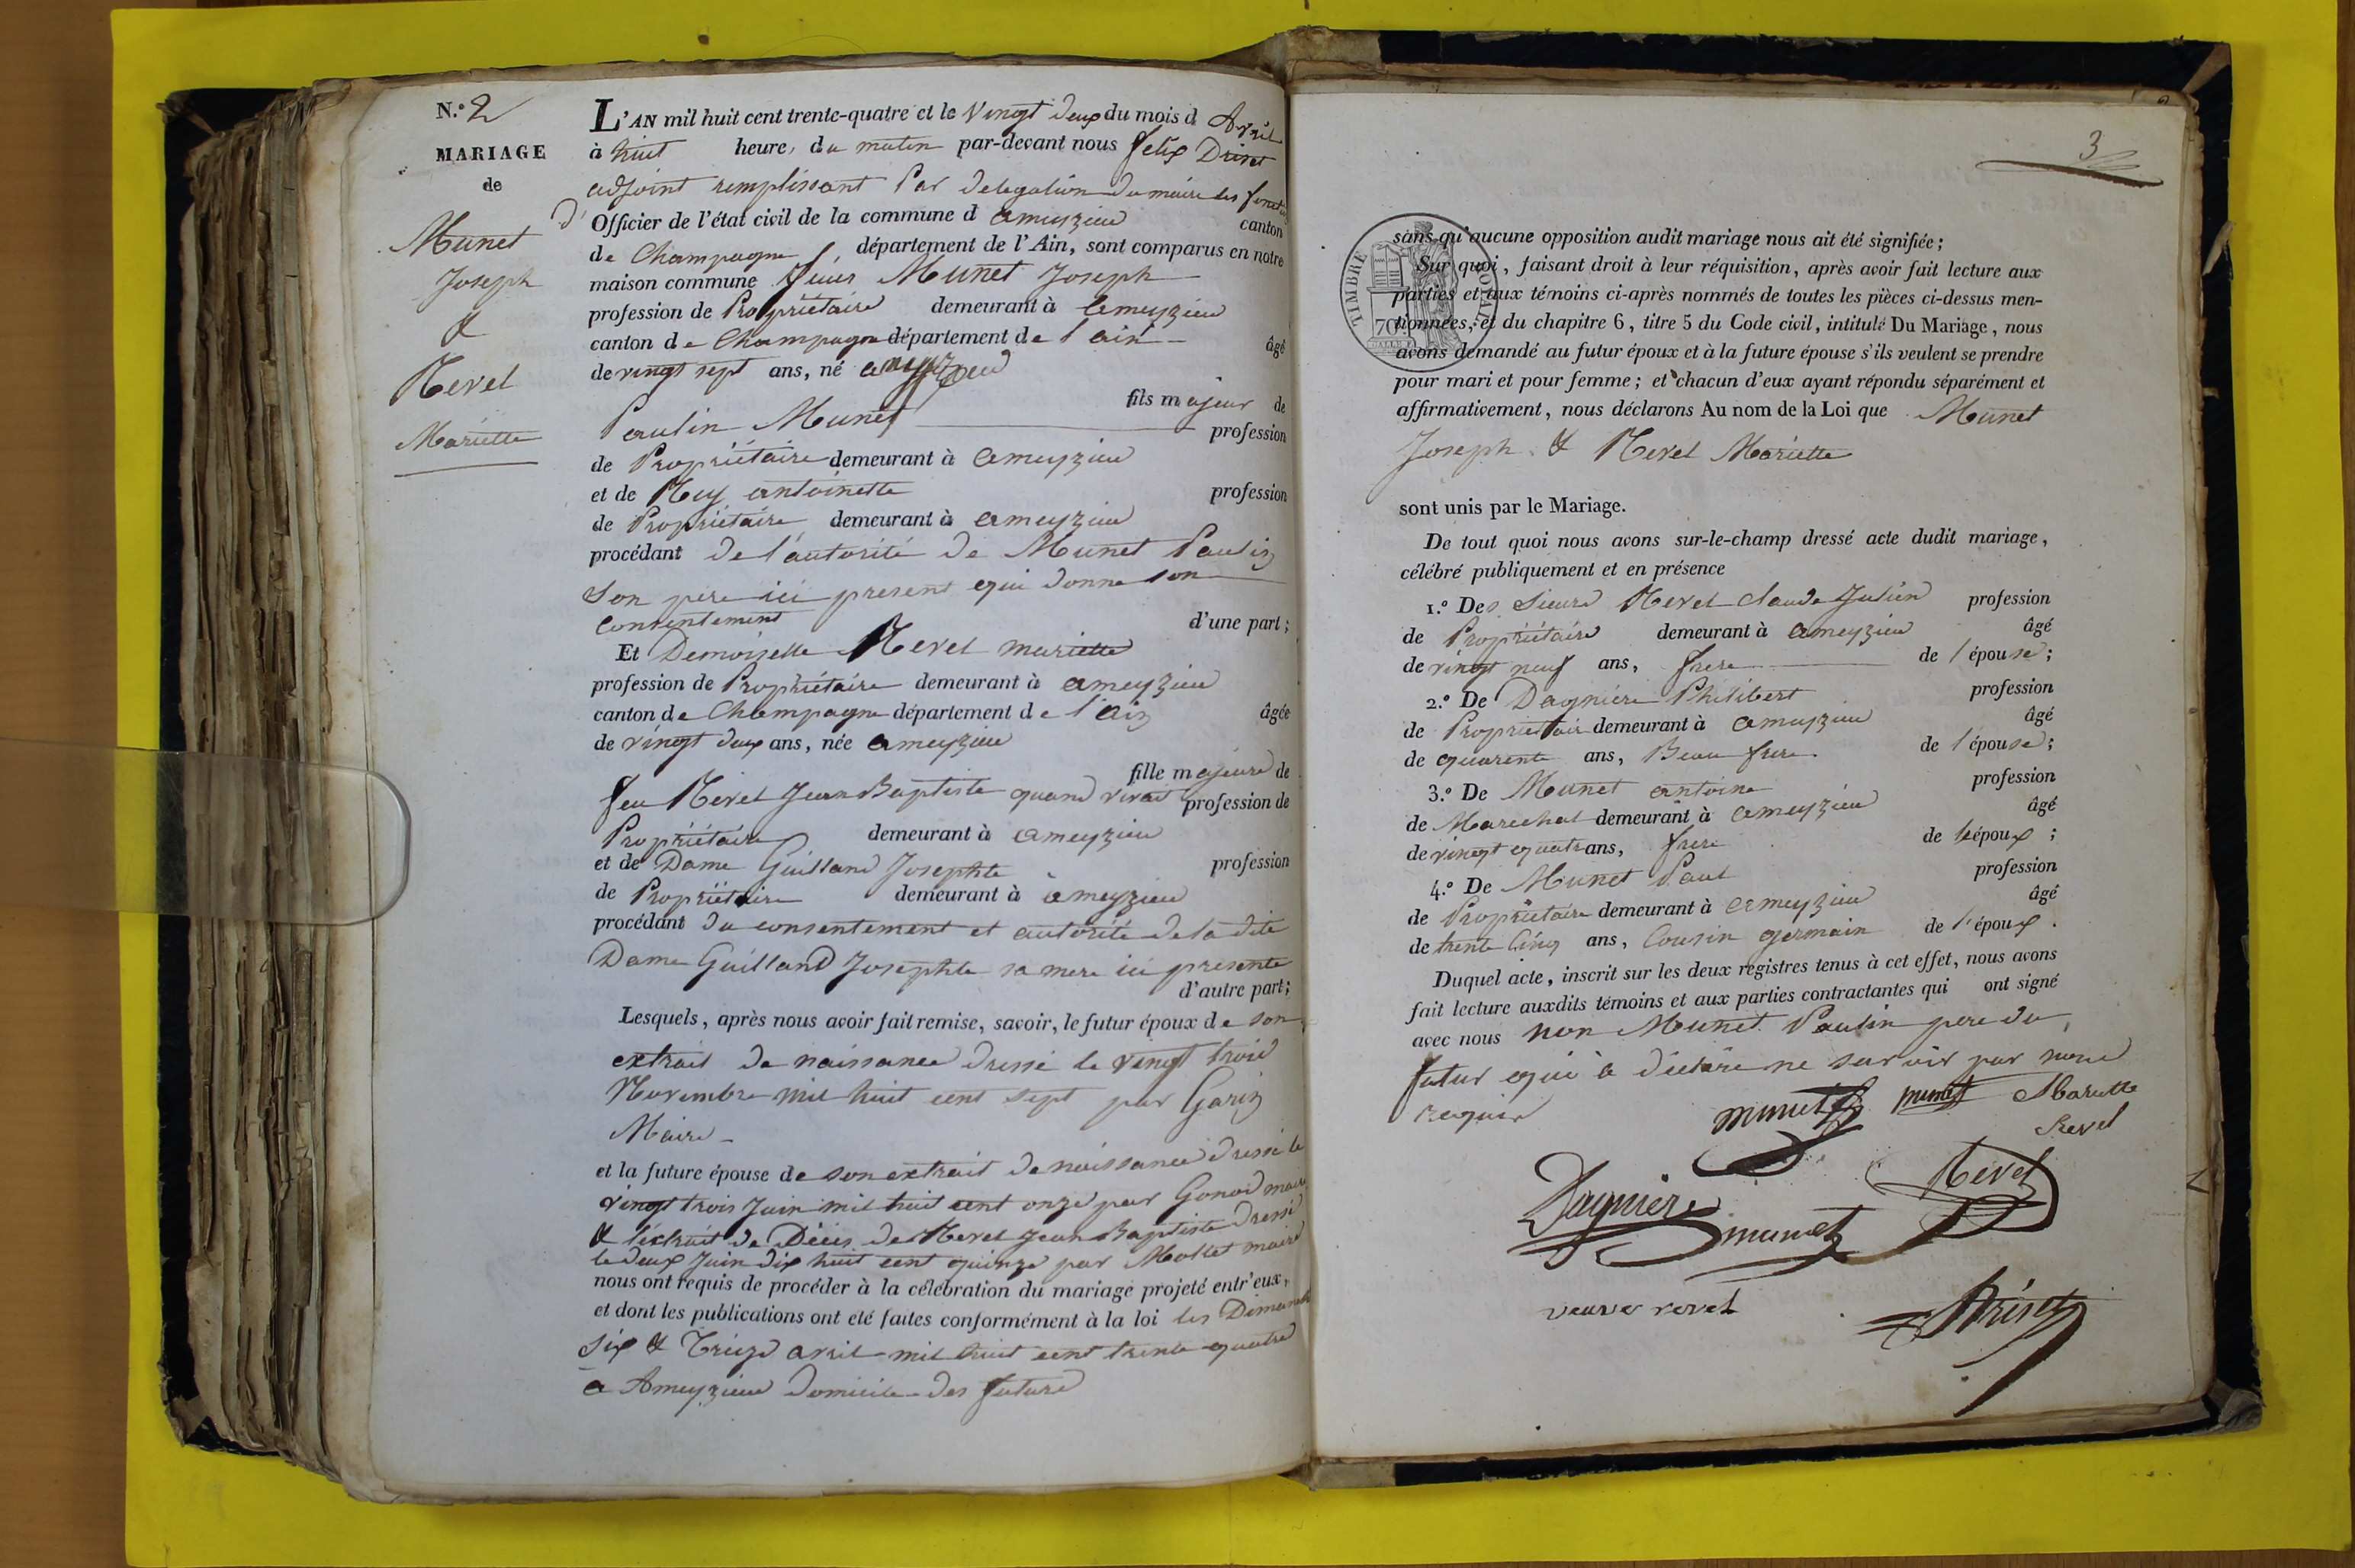 N.º 2
MARIAGE
de
Munet
Joseph
&
Revel
Mariette
L'AN mil huit cent trente-quatre et le Vingt deux du mois d Avril
à huit heure, du matin par-devant nous felix Driset
adjoint remplissant Par delegation du maire les fonct
d' Officier de l'état civil de la commune d ameyzieu canton
de Champagne département de l'Ain, sont comparus en notre
maison commune Sieur Munet Joseph
profession de Propriétaire demeurant à ameyzieu
canton de Champagne département de l'ain âgé
de vingt sept ans, né ameyzieu
fils majeur de
Paulin Munet profession
de Propriétaire demeurant à ameyzieu
et de Rey antoinette profession
de Propriétaire demeurant à ameyzieu
procédant de l'autorité de Munet Paulin
Son pere ici present qui donne son
Consentement d'une part;
Et Demoiselle Revel mariette
profession de Propriétaire demeurant à ameyzieu
canton de Champagne département de l'ain âgée
de vingt deux ans, née ameyzieu
fille majeure de
feu Revel Jean Baptiste quand vivait profession de
Propriétaire demeurant à ameyzieu
et de Dame Guilland Josephte profession
de Propriétaire demeurant à ameyzieu
procédant du consentement et autorité de la dite
Dame Guilland Josephte sa mere ici presente
d'autre part;
Lesquels, après nous avoir fait remise, savoir, le futur époux de son
extrait de naissance dressé le vingt trois
Novembre mil huit cent sept par Garin
Maire
et la future épouse de son extrait de naissance dressé le
vingt trois Juin mil huit cent onze par Gonod maire
& l'extrait de Décès de Revel Jean Baptiste dressé
le deux Juin dix huit cent quinze par Mollet maire
nous ont requis de procéder à la célébration du mariage projeté entr'eux,
et dont les publications ont été faites conformément à la loi les Dimanch
Six & Treize avril mil huit cent trente quatre
a Ameyzieu domicile des futurs
3
TIMBRE ROYAL
70
sans qu'aucune opposition audit mariage nous ait été signifiée;
Sur quoi, faisant droit à leur réquisition, après avoir fait lecture aux
parties et aux témoins ci-après nommés de toutes les pièces ci-dessus men-
tionnées, et du chapitre 6, titre 5 du Code civil, intitulé Du Mariage, nous
avons demandé au futur époux et à la future épouse s'ils veulent se prendre
pour mari et pour femme; et chacun d'eux ayant répondu séparément et
affirmativement, nous déclarons Au nom de la Loi que Munet
Joseph & Revel Mariette
sont unis par le Mariage.
De tout quoi nous avons sur-le-champ dressé acte dudit mariage,
célébré publiquement et en présence
1.º Des Sieurs Revel Claude Julien profession
de Propriétaire demeurant à ameyzieu âgé
de vingt neuf ans, frere de l'épouse;
2.º De Dagniere Philibert profession
de Propriétair demeurant à ameyzieu âgé
de quarente ans, Beau frere de l'épouse;
3.º De Munet antoine profession
de Marechal demeurant à ameyzieu âgé
de vingt quatre ans, frere de l'époux;
4.º De Munet Paul profession
de Propriétaire demeurant à ameyzieu âgé
de trente Cinq ans, Cousin germain de l'époux.
Duquel acte, inscrit sur les deux registres tenus à cet effet, nous avons
fait lecture auxdits témoins et aux parties contractantes qui ont signé
avec nous non Munet Paulin pere du
futur qui a déclaré ne savoir par nous
requis
munet munet Mariette
Revel
Revel
Dagniere
munet
veuve revel
Driset